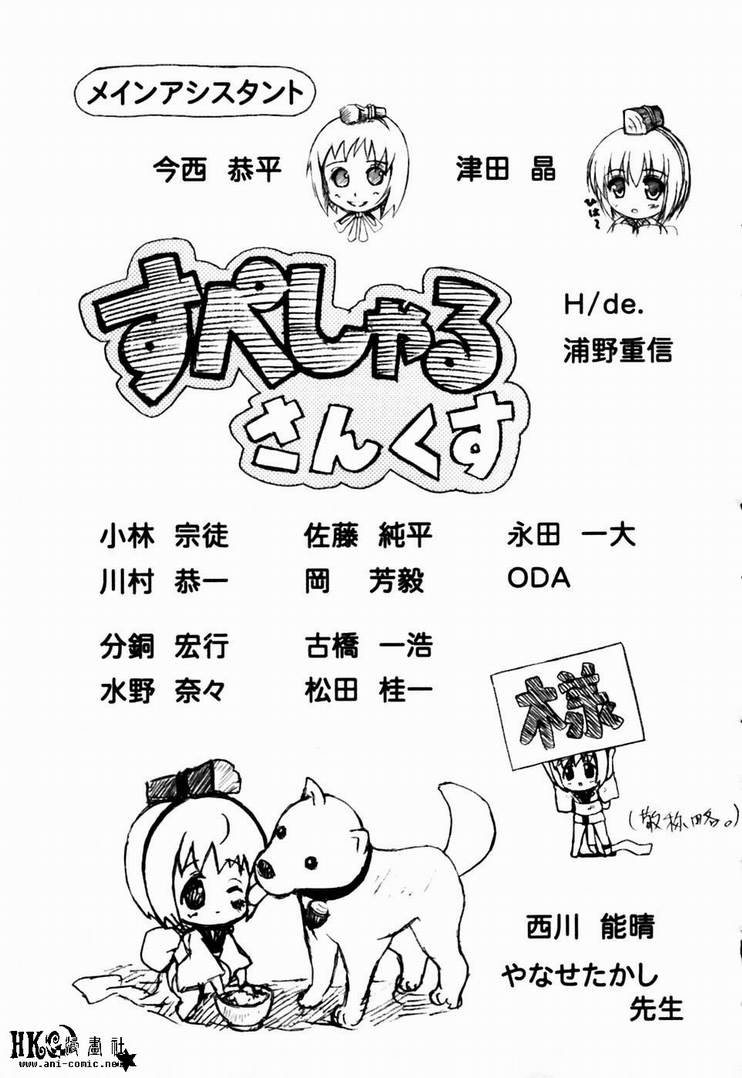 メインアシスタント
今西 恭平
津田 晶
ひは〜
すぺしゃる
さんくす
H/de.
浦野重信
小林 宗徒 佐藤 純平 永田 一大
川村 恭一 岡 芳毅 ODA
分銅 宏行 古橋 一浩
水野 奈々 松田 桂一
様
(敬称略。)
西川 能晴
やなせたかし
先生
HK 漫畫社
www.ani-comic.net